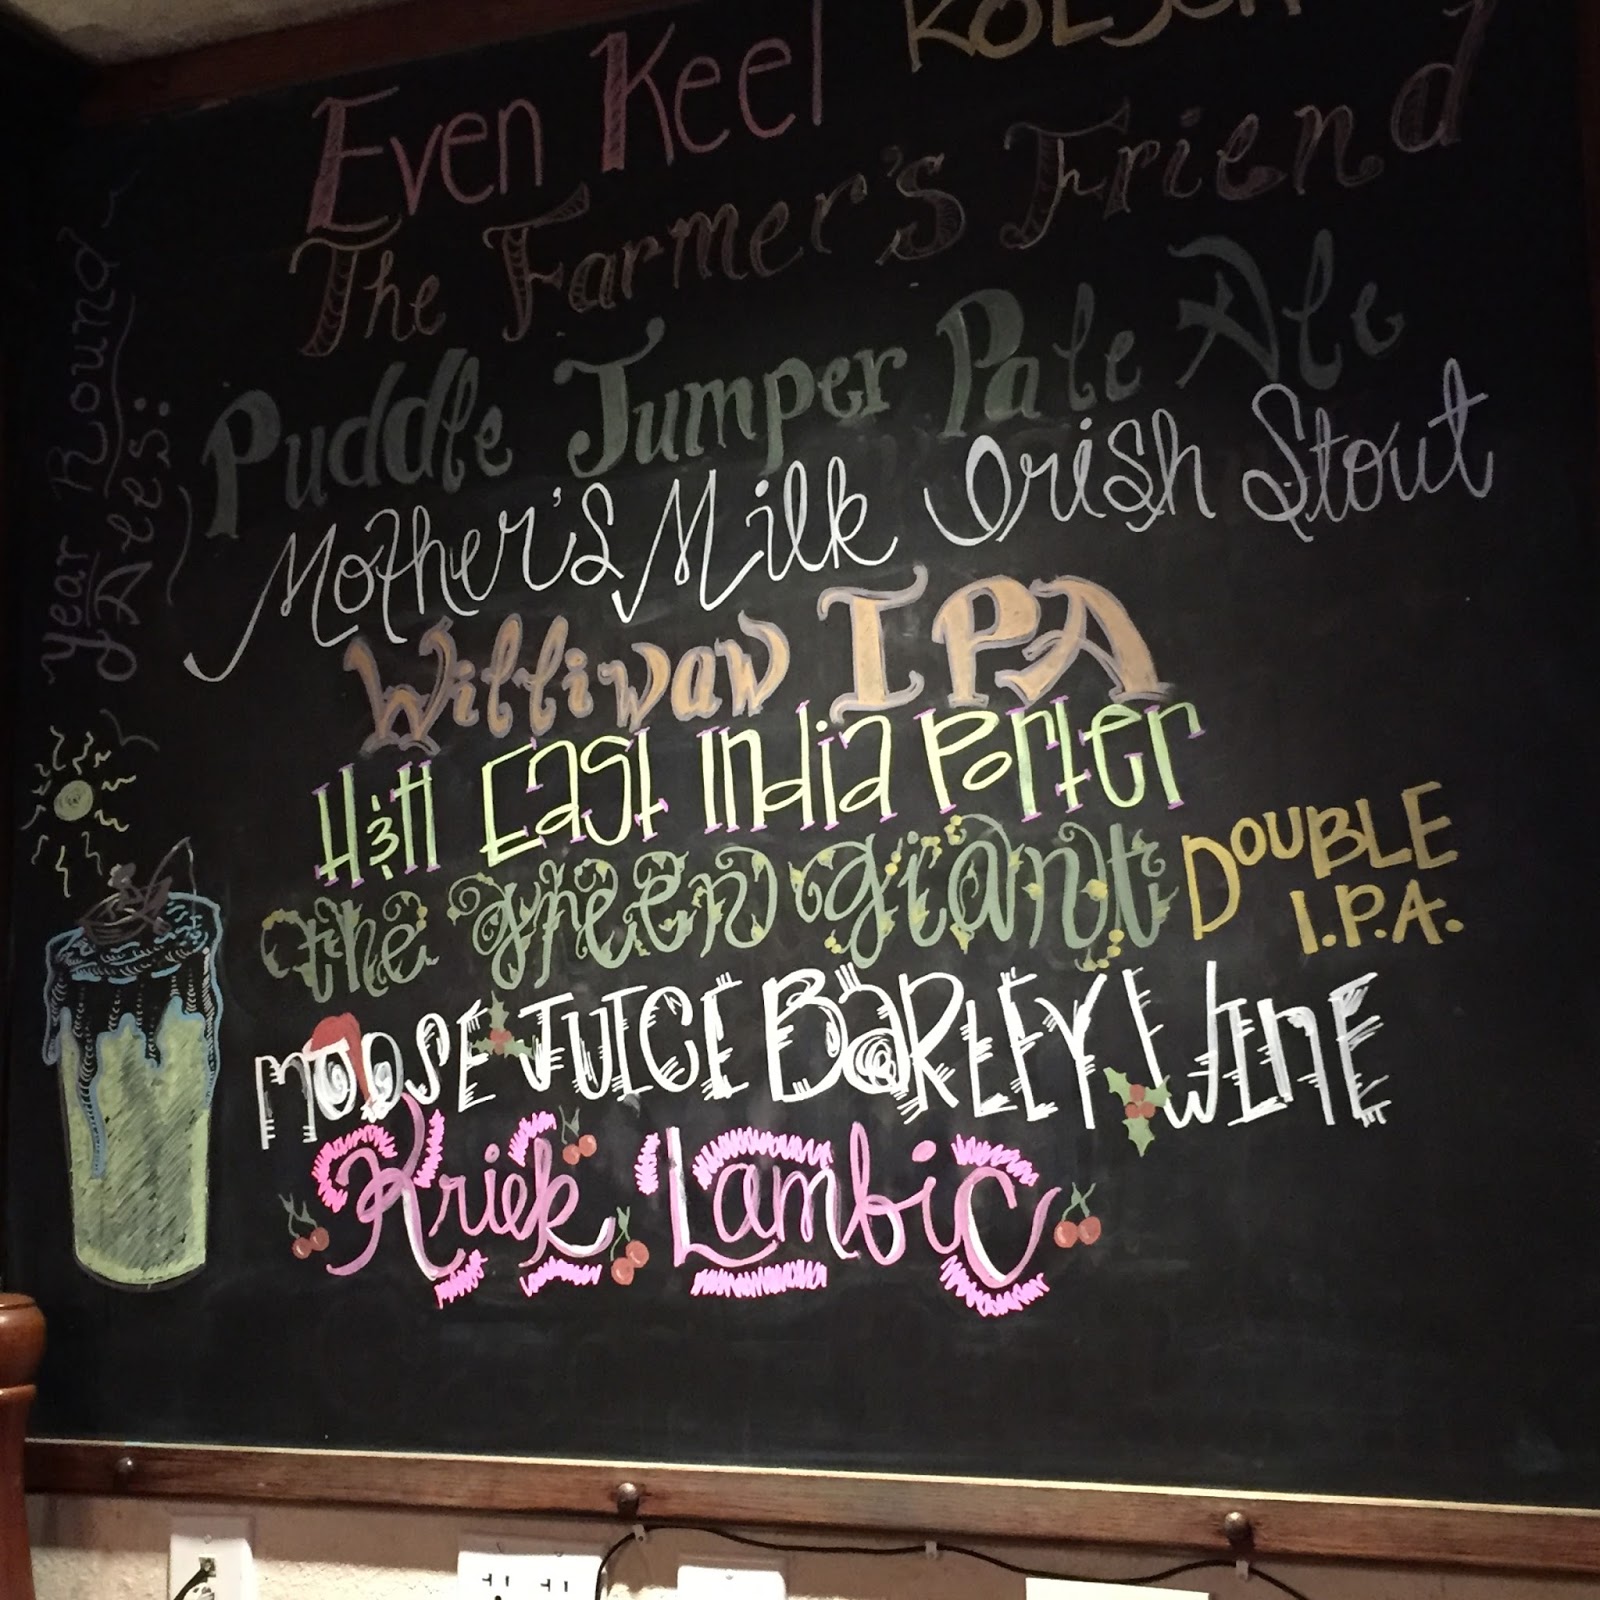 Even Keel KOLSCH
The Farmer's Friend
Year Round
Ales:
Puddle Jumper Pale Ale
Mother's Milk Irish Stout
Williwaw IPA
H&H East India Porter
the green giant DOUBLE
I.P.A.
MOOSE JUICE BARLEY WINE
Kriek Lambic